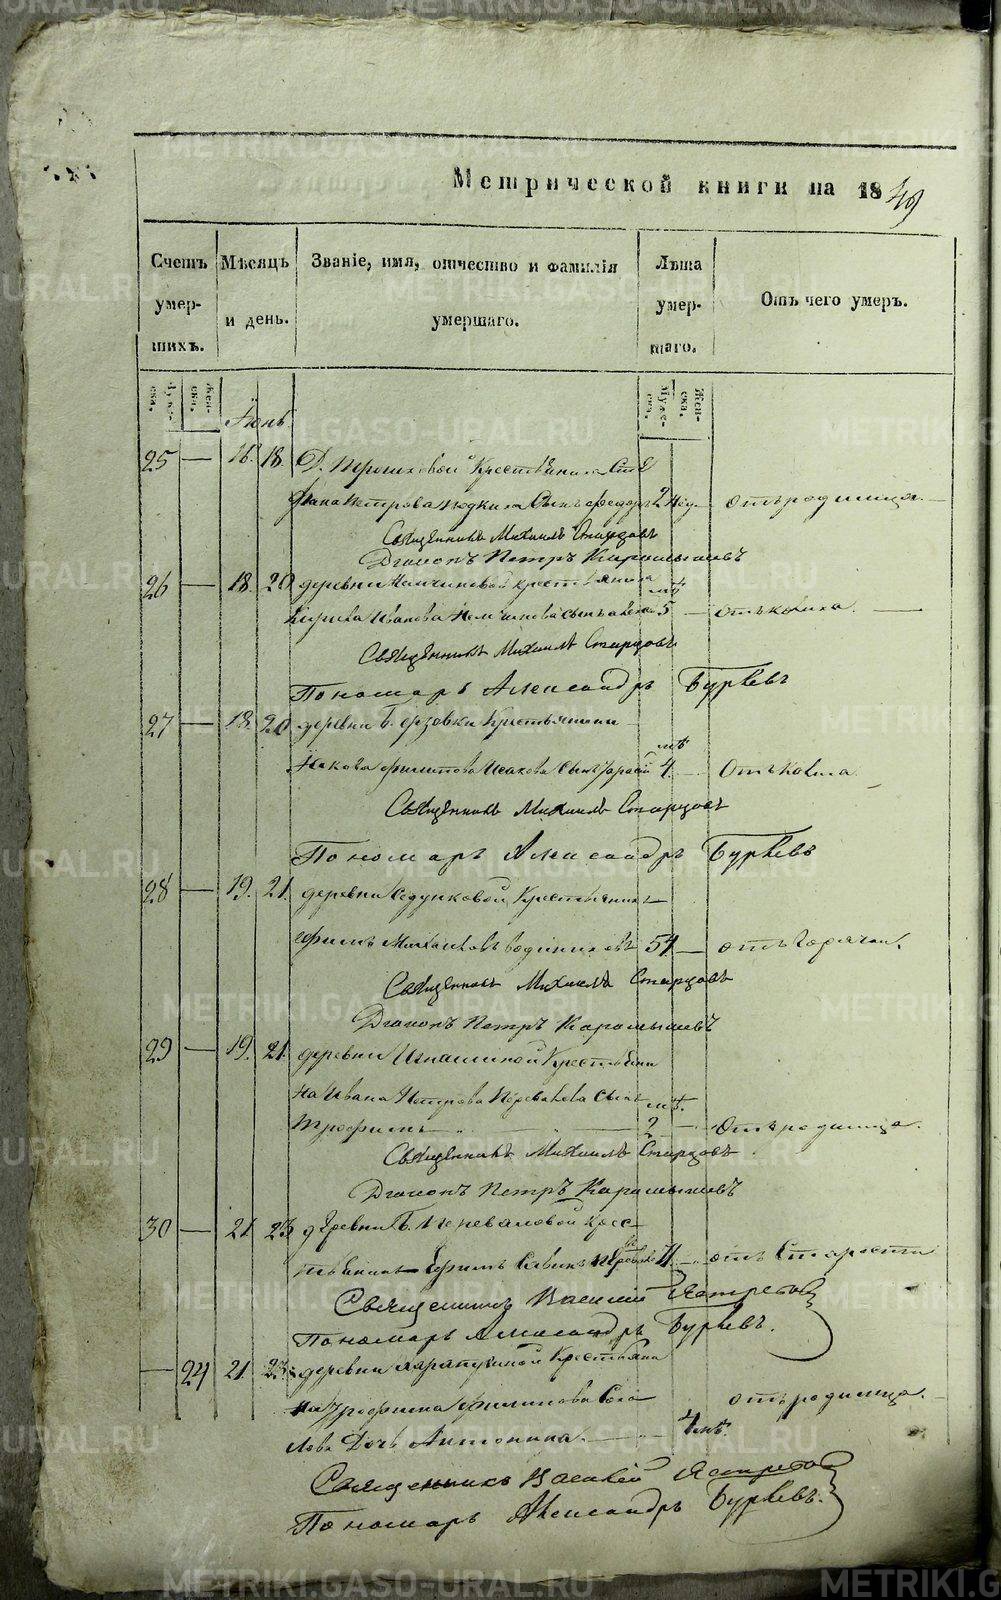 Метрической книги на 1849
Счетъ умершихъ.
Мѣсяцъ и день.
Званіе, имя, отчество и фамилія умершаго.
Лѣта умершаго.
Отъ чего умеръ.
Мужеска.
Женска.
Мужеска.
Женска.
Іюнь
25 — 16. 18. Д. Трошковой Крестьянина Сте
фана Петрова сынъ Федоръ 2 нед. — отъ родимца. —
Священникъ Михаилъ Старцовъ
Діаконъ Петръ Карамышевъ
26 — 18. 20 деревни Немчиновой крестьянина
Кирила Иванова Немчинова сынъ 5 мѣ — отъ коклюша. —
Священникъ Михаилъ Старцовъ
Пономарь Александръ Бурѣевъ
27 — 18. 20 деревни Березовки Крестьянина
Якова Филипова Исакова сынъ 4 мѣ. — Отъ коклюша.
Священникъ Михаилъ Старцовъ
Пономарь Александръ Бурѣевъ
28 — 19. 21. деревни Седунковой Крестьянинъ
Ефимъ Михаиловъ Водениковъ 54 — отъ горячки.
Священникъ Михаилъ Старцовъ
Діаконъ Петръ Карамышевъ
29 — 19. 21. деревни Игнашиной Крестьяни
на Ивана Петрова Перевалова сынъ
Трофимъ — 2 мѣ. — Отъ родимца.
Священникъ Михаилъ Старцовъ
Діаконъ Петръ Карамышевъ
30 — 21. 23 деревни Б. Переваловой Крес
тьянинъ Ефимъ Савинъ 71. — отъ Старости
Священникъ Василій Ястребовъ
Пономарь Александръ Бурѣевъ.
— 24 21. 23. деревни Крестьяни
на Трофима Филипова Соко
лова Дочь Антонина. — 4 мѣ. отъ родимца. —
Священникъ Василій Ястребовъ
Пономарь Александръ Бурѣевъ.
METRIKI.GASO-URAL.RU